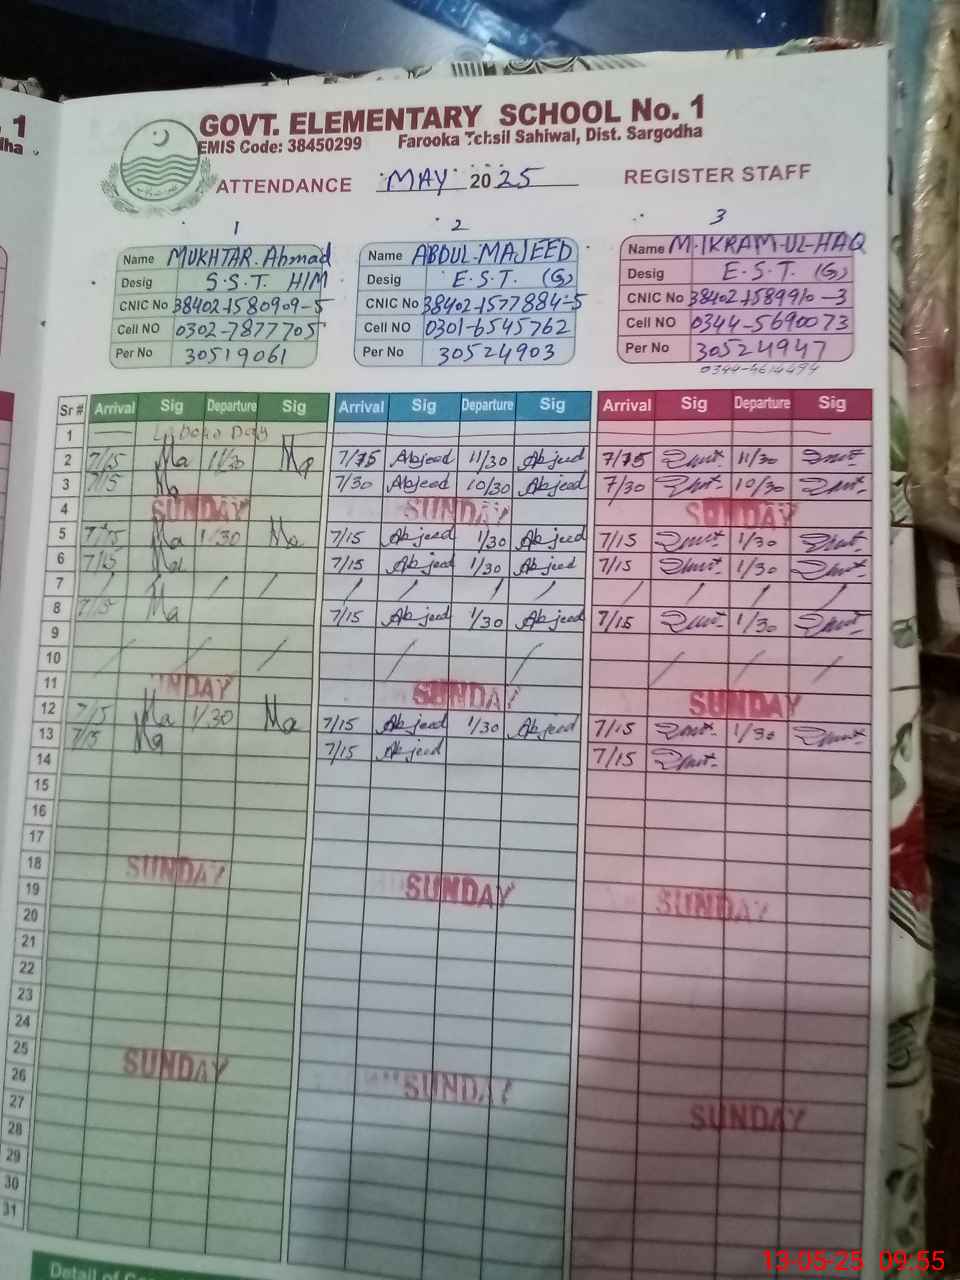 . 1
GOVT. ELEMENTARY SCHOOL No. 1
EMIS Code: 38450299 Farooka Tehsil Sahiwal, Dist. Sargodha
ATTENDANCE MAY 2025 REGISTER STAFF
1 2 3
Name MUKHTAR. Ahmad Name ABDUL MAJEED Name M. IKRAM-UL-HAQ
Desig S.S.T. H/M Desig E.S.T. (G) Desig E.S.T. (G)
CNIC No 38402-1580909-5 CNIC No 38402-1577884-5 CNIC No 38402-1589910-3
Cell NO 0302-7877705 Cell NO 0301-6545762 Cell NO 0344-5690073
Per No 30519061 Per No 30524903 Per No 30524947
0344-4614494
Sr # Arrival Sig Departure Sig Arrival Sig Departure Sig Arrival Sig Departure Sig
1 Day
2 7/15 Ma 11/30 Ma 7/15 Abjeed 11/30 Abjeed 7/15 11/30
3 7/15 Ma 7/30 Abjeed 10/30 Abjeed 7/30 10/30
4 SUNDAY SUNDAY SUNDAY
5 7/15 Ma 1/30 Ma 7/15 Abjeed 1/30 Abjeed 7/15 1/30
6 7/15 Ma 7/15 Abjeed 1/30 Abjeed 7/15 1/30
7
8 7/15 Ma 7/15 Abjeed 1/30 Abjeed 7/15 1/30
9
10
11 SUNDAY SUNDAY SUNDAY
12 7/15 Ma 1/30 Ma 7/15 Abjeed 1/30 Abjeed 7/15 1/30
13 7/15 Ma 7/15 Abjeed 7/15
14
15
16
17
18 SUNDAY SUNDAY SUNDAY
19
20
21
22
23
24
25 SUNDAY SUNDAY SUNDAY
26
27
28
29
30
31
Detail of
13-05-25 09:55